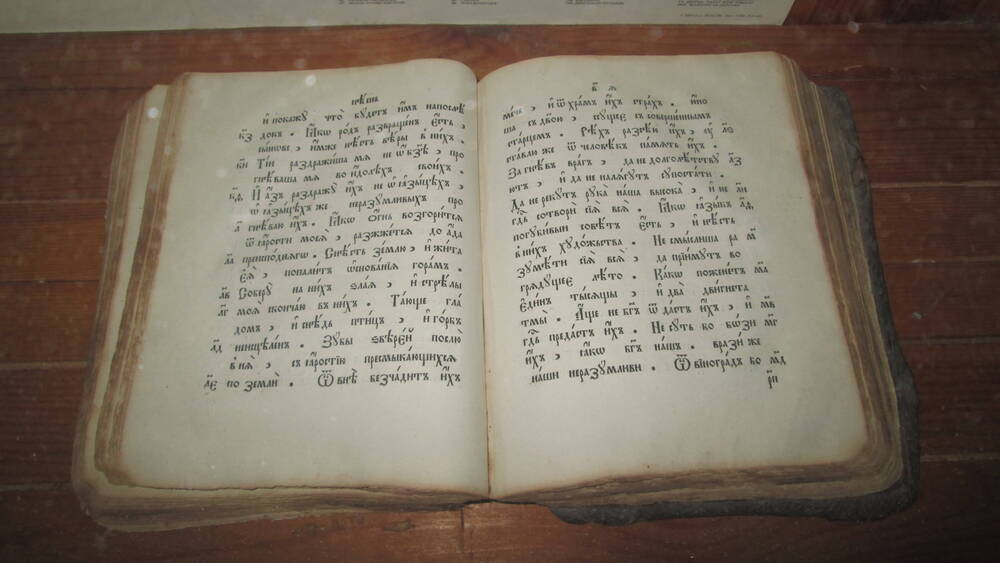 пѣснь
и҆ покажꙋ что̀ бꙋдетъ и҆̀мъ напослѣ
к҃з докъ . Ꙗ҆́кѡ ро́дъ развращенъ є҆́сть ,
сынове , и҆́мже нѣсть вѣры в ни́хъ .
к҃и Ті́и раздражиша мѧ не ѡ҆ бз҃ѣ , про
гнѣваша мѧ во и҆́долѣхъ своихъ .
к҃ѳ И҆ а҆́зъ раздражꙋ и҆́хъ не ѡ҆ ꙗ҆зы́цѣхъ ,
ѡ҆ ꙗ҆зы́цѣхъ же неразꙋмливыхъ про
л҃ гнѣваю и҆́хъ . Ꙗ҆́кѡ ѻ҆́гнь возгорится
ѿ ꙗ҆́рости моеѧ̀ , разжжется до а҆́да
л҃а преисподнѧгѡ . Снѣсть землю , и҆ жита
є҆ѧ̀ , попалитъ ѡ҆снованїѧ горамъ .
л҃в Соберꙋ̀ на ни́хъ ѕлаѧ , и҆ стрѣлы
л҃г моѧ скончаю в ни́хъ . Тающе гла́
домъ , и҆ снѣдь пти́цъ , и҆ го́рбъ
л҃д неищѣленъ . Зꙋбы ѕвѣре́й послю
в нѧ̀ , съ ꙗ҆́ростїю пресмыкающихсѧ
л҃е по земли . Ѿ внѣ безчадитъ и҆́хъ
в҃ ѧ
мечь , и҆ ѿ хра́мъ и҆́хъ стра́хъ . ю҆́но
ша съ дв҃ою , сꙋщее съ совершеннымъ
старцемъ . Рѣ́хъ разсѣю и҆́хъ , ѹ҆ л҃ѕ
ставлю же ѿ человѣкъ памѧть и҆́хъ .
За гнѣвъ врагъ , да не долголѣтствꙋ л҃з
ютъ , и҆ да не налѧгꙋтъ сꙋпостати .
Да не рекꙋтъ рꙋка̀ наша высока̀ , и҆ не л҃и
гд҇ь сотвори сїѧ̀ всѧ̀ . Ꙗ҆́кѡ ꙗ҆зы́къ л҃ѳ
погꙋбивыи совѣтъ є҆́сть , и҆ нѣсть
в ни́хъ хꙋдо́жьства . Не смыслиша ра м҃
зꙋмѣти сїѧ̀ всѧ̀ . да прїи́мꙋтъ во
грѧдꙋщее лѣто . Ка́кѡ поженетъ м҃а
є҆ди́нъ тысѧщы , и҆ два̀ двигнета
тмы̀ . А҆́ще не бг҃ъ ѿ да́стъ и҆́хъ , и҆ м҃в
гд҇ь предастъ и҆́хъ . Не сꙋть бо бо́зи м҃г
и҆́хъ , ꙗ҆́кѡ бг҃ъ на́шъ . врази же
на́ши неразꙋмливи . Ѿ вїноградъ бо м҃д
рп